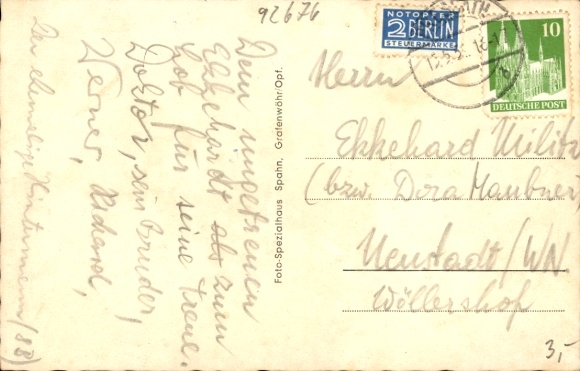 92676
Dem ungetreuen
Ekkehardt als zum
Lob für seine Treue.
Doktor, sein Bruder,
Werner, Richard,
Der ehemalige
Foto-Spezialhaus Spahn, Grafenwöhr/Opf.
NOTOPFER
2 BERLIN
STEUERMARKE
10
DEUTSCHE POST
Herrn
Ekkehard Militz
(bzw. Dora Maubner)
Neustadt/WN.
Wöllershof
3,-